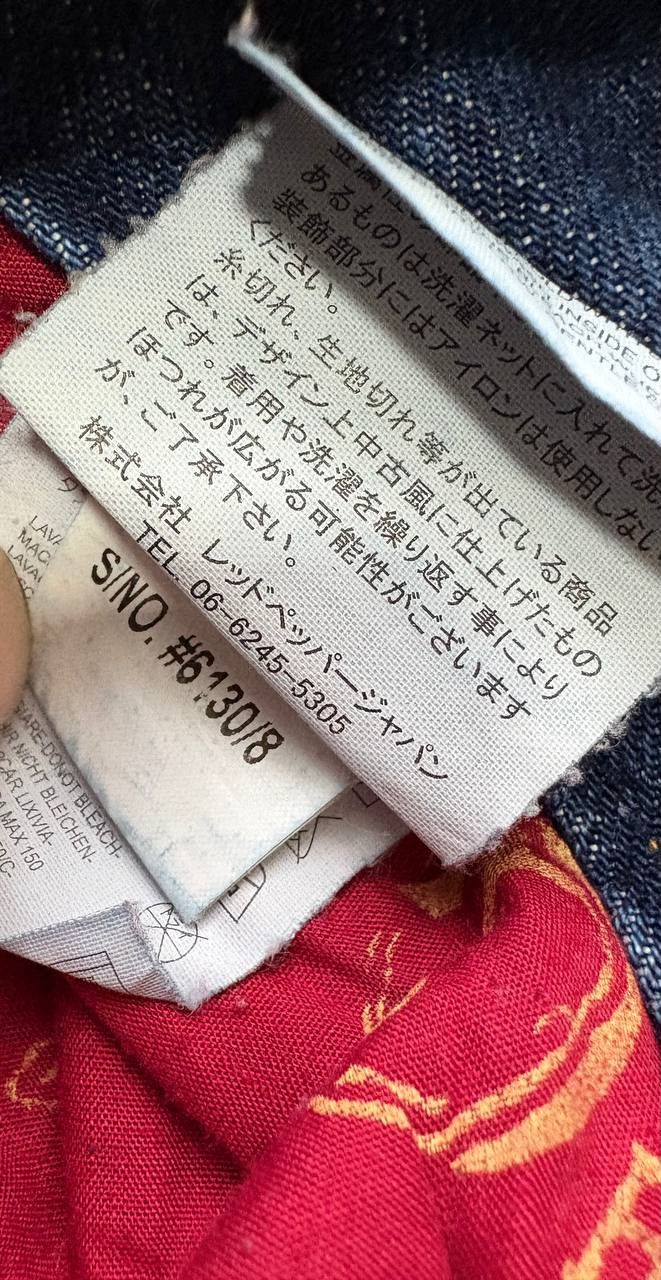 あるものは洗濯ネットに入れて洗
装飾部分にはアイロンは使用しない
ください。
糸切れ、生地切れ等が出ている商品
は、デザイン上中古風に仕上げたもの
です。着用や洗濯を繰り返す事により
ほつれが広がる可能性がございます
が、ご了承下さい。
株式会社 レッドペッパージャパン
TEL 06-6245-5305
S/NO. #6130/8
INSIDE O
DO NOT BLEACH-
NICHT BLEICHEN-
LIXIVIA-
MAX 150